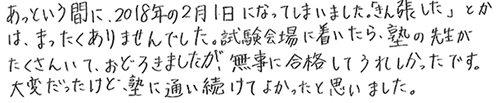 あっという間に、2018年の2月1日になってしまいました。「きん張した」とか
は、まったくありませんでした。試験会場に着いたら、塾の先生が
たくさんいて、おどろきましたが、無事に合格してうれしかったです。
大変だったけど、塾に通い続けてよかったと思いました。